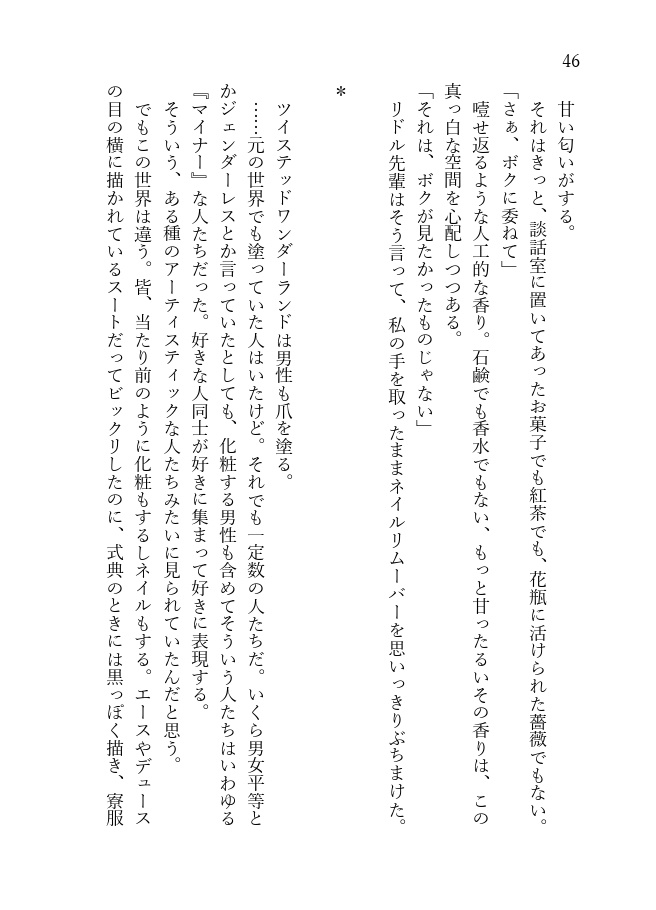 46
甘い匂いがする。
それはきっと、談話室に置いてあったお菓子でも紅茶でも、花瓶に活けられた薔薇でもない。
「さぁ、ボクに委ねて」
噎せ返るような人工的な香り。石鹸でも香水でもない、もっと甘ったるいその香りは、この
真っ白な空間を心配しつつある。
「それは、ボクが見たかったものじゃない」
リドル先輩はそう言って、私の手を取ったままネイルリムーバーを思いっきりぶちまけた。
*
ツイステッドワンダーランドは男性も爪を塗る。
……元の世界でも塗っていた人はいたけど。それでも一定数の人たちだ。いくら男女平等と
かジェンダーレスとか言っていたとしても、化粧する男性も含めてそういう人たちはいわゆる
『マイナー』な人たちだった。好きな人同士が好きに集まって好きに表現する。
そういう、ある種のアーティスティックな人たちみたいに見られていたんだと思う。
でもこの世界は違う。皆、当たり前のように化粧もするしネイルもする。エースやデュース
の目の横に描かれているスートだってビックリしたのに、式典のときには黒っぽく描き、寮服